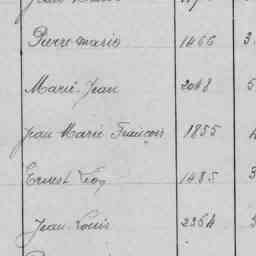 Pierre-Mario 1466 3
Marie-Jean 2048 5
Jean Marie François 1855
Ernest Léon 1485 3
Jean-Louis 2364 3